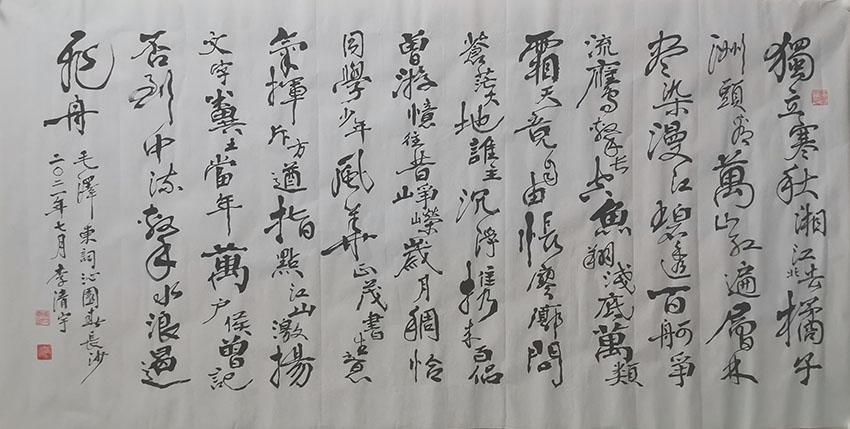 獨立寒秋湘江北去橘子
洲頭看萬山紅遍層林
盡染漫江碧透百舸爭
流鷹擊長空魚翔淺底萬類
霜天竞自由悵寥廓問
蒼茫大地誰主沉浮攜来百侣
曾游憶往昔崢嶸歲月稠恰
同學少年風華正茂書生意
氣揮斥方遒指點江山激揚
文字糞土當年萬户侯曾記
否到中流擊水浪遏
飛舟
毛澤東詞沁園春長沙
二〇二一年七月李清宇